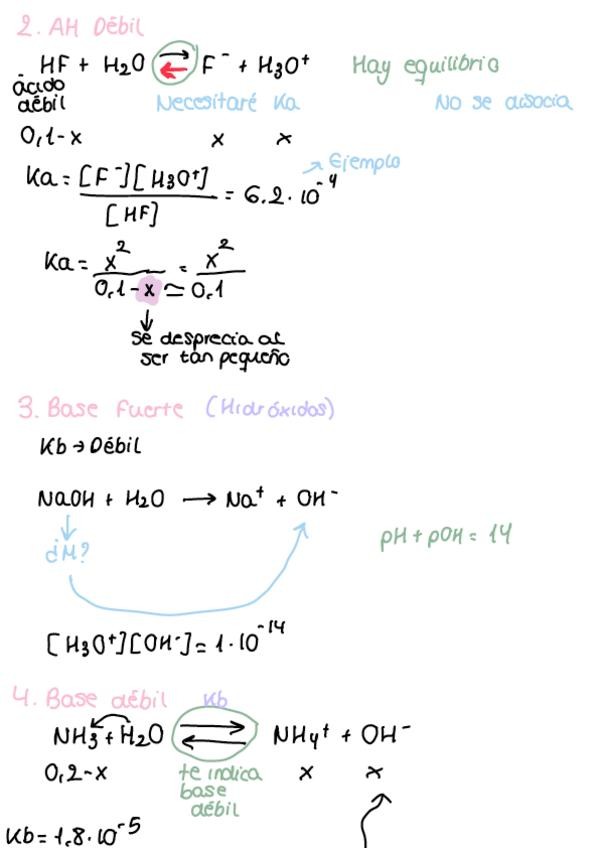 2. AH Débil
HF + H2O ⇄ F⁻ + H3O⁺ Hay equilibrio
ácido
débil Necesitaré Ka No se disocia
0,1-x x x
Ka = [F⁻][H3O⁺] / [HF] = 6.2·10⁻⁴ → Ejemplo
Ka = x² / 0,1-x = x² / ≃ 0,1
↓
se desprecia al
ser tan pequeño
3. Base Fuerte (Hidróxidos)
Kb → Débil
NaOH + H2O → Na⁺ + OH⁻
pH + pOH = 14
¿M?
[H3O⁺][OH⁻] = 1·10⁻¹⁴
4. Base débil Kb
NH3 + H2O ⇄ NH4⁺ + OH⁻
0,2-x te indica x x
base
débil
Kb = 1,8·10⁻⁵